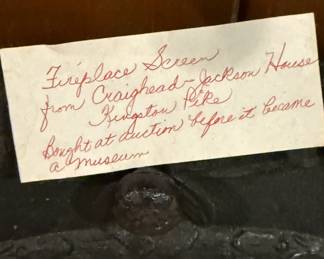 Fireplace Screen
from Craighead-Jackson House
Kingston Pike
Bought at auction before it became
a museum